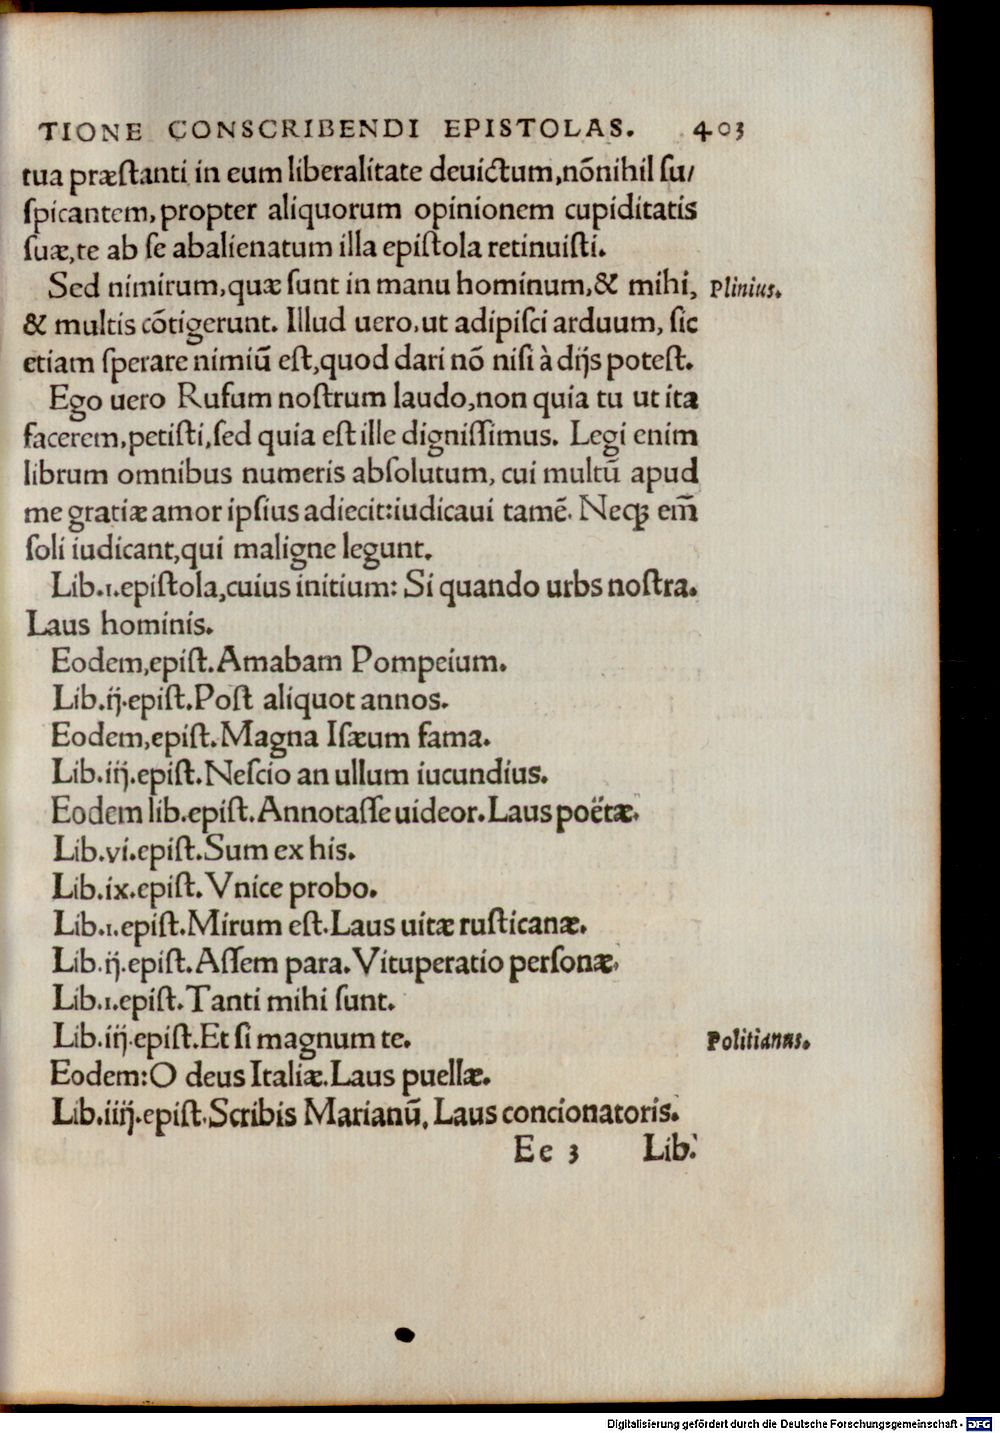 TIONE CONSCRIBENDI EPISTOLAS. 403
tua præſtanti in eum liberalitate deuictum,nõnihil ſu/
ſpicantem, propter aliquorum opinionem cupiditatis
ſuæ,te ab ſe abalienatum illa epiſtola retinuiſti.
Sed nimirum,quæ ſunt in manu hominum,& mihi, Plinius.
& multis cõtigerunt. Illud uero,ut adipiſci arduum, ſic
etiam ſperare nimiũ eſt,quod dari nõ niſi à dijs poteſt.
Ego uero Rufum noſtrum laudo,non quia tu ut ita
facerem,petiſti,ſed quia eſt ille digniſſimus. Legi enim
librum omnibus numeris abſolutum, cui multũ apud
me gratiæ amor ipſius adiecit:iudicaui tamẽ. Neqꝫ em̃
ſoli iudicant,qui maligne legunt.
Lib.1.epiſtola,cuius initium: Si quando urbs noſtra.
Laus hominis.
Eodem,epiſt.Amabam Pompeium.
Lib.ij.epiſt.Poſt aliquot annos.
Eodem,epiſt.Magna Iſæum fama.
Lib.iij.epiſt.Neſcio an ullum iucundius.
Eodem lib.epiſt.Annotaſſe uideor.Laus poëtæ.
Lib.vi.epiſt.Sum ex his.
Lib.ix.epiſt.Vnice probo.
Lib.1.epiſt.Mirum eſt.Laus uitæ ruſticanæ.
Lib.ij.epiſt.Aſſem para.Vituperatio perſonæ.
Lib.1.epiſt.Tanti mihi ſunt.
Lib.iij.epiſt.Et ſi magnum te. Politianus.
Eodem:O deus Italiæ.Laus puellæ.
Lib.iiij.epiſt.Scribis Marianũ. Laus concionatoris.
Ee 3 Lib.
Digitalisierung gefördert durch die Deutsche Forschungsgemeinschaft - DFG